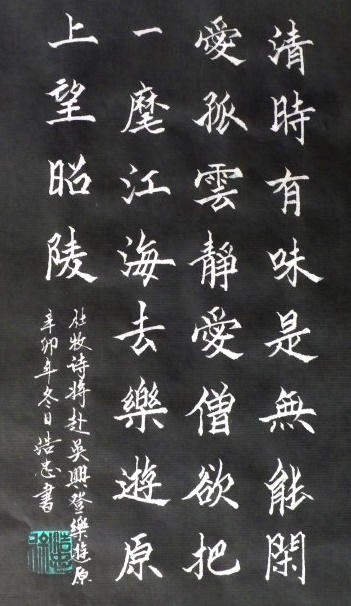 清時有味是無能閑
愛孤雲靜愛僧欲把
一麾江海去樂遊原
上望昭陵
杜牧诗将赴吳興登樂遊原
辛卯年冬日浩書